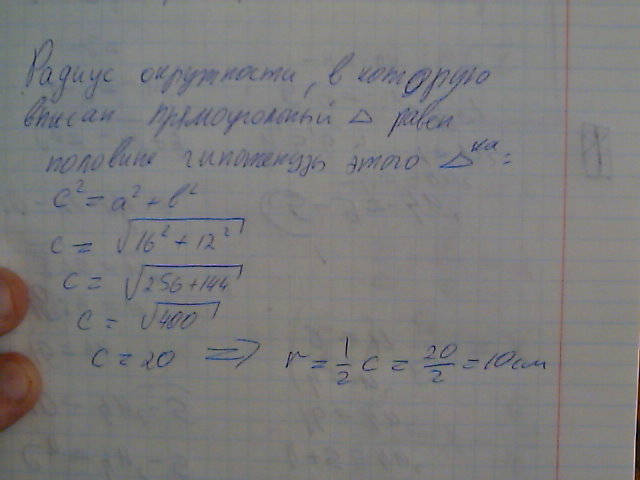 Радиус окружности, в которую
вписан прямоугольный △ равен
половине гипотенузы этого △ка:
c² = a² + b²
c = √(16² + 12²)
c = √(256 + 144)
c = √400
c = 20 => r = 1/2 c = 20/2 = 10 см